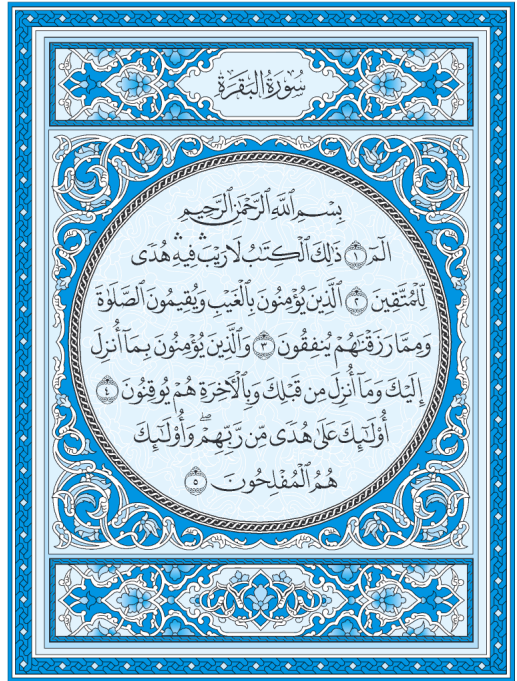 سُورَةُ البَقَرَةِ
بِسْمِ ٱللَّهِ ٱلرَّحْمَٰنِ ٱلرَّحِيمِ
الٓمٓ ١ ذَٰلِكَ ٱلْكِتَٰبُ لَا رَيْبَۛ فِيهِۛ هُدًى
لِّلْمُتَّقِينَ ٢ ٱلَّذِينَ يُؤْمِنُونَ بِٱلْغَيْبِ وَيُقِيمُونَ ٱلصَّلَوٰةَ
وَمِمَّا رَزَقْنَٰهُمْ يُنفِقُونَ ٣ وَٱلَّذِينَ يُؤْمِنُونَ بِمَآ أُنزِلَ
إِلَيْكَ وَمَآ أُنزِلَ مِن قَبْلِكَ وَبِٱلْأَخِرَةِ هُمْ يُوقِنُونَ ٤
أُوْلَٰٓئِكَ عَلَىٰ هُدًى مِّن رَّبِّهِمْۖ وَأُوْلَٰٓئِكَ
هُمُ ٱلْمُفْلِحُونَ ٥